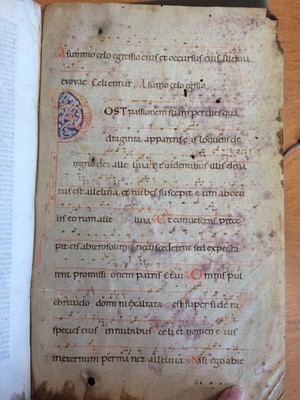 A summo celo egressio eius et occursus eius alleluia
evovae Celi enar. A sumo celo egssio
POST passionem suam per dies qua
draginta apparens eis loquens de
regno dei alleluia Et videntibus illis eleva
tus est alleluia et nubes suscepit eum ab ocu
lis eorum alleluia Et convescens prece
pit eis ab ierosolimis ne discederent sed expecta
rent promissionem patris Et vi Omnis pul
chritudo domini exaltata est super sidera
species eius in nubibus celi et nomen eius
in eternum permanet alleluia Nisi ego abie